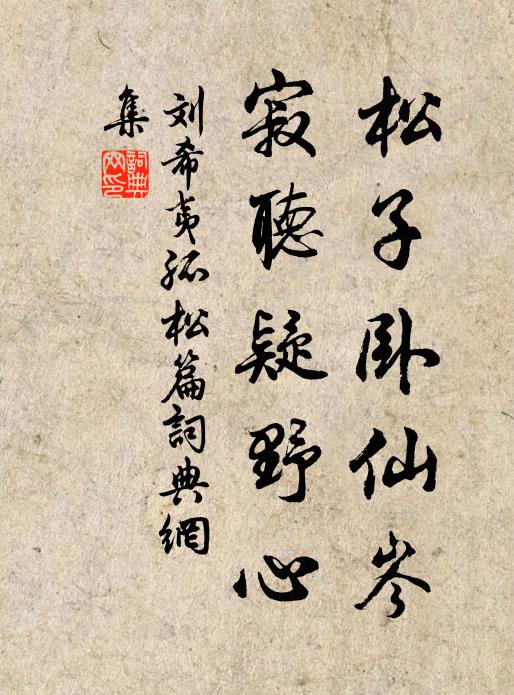 松子卧仙岑
寂聽疑野心
刘希夷孤松篇詞典網
集
詞典
网印